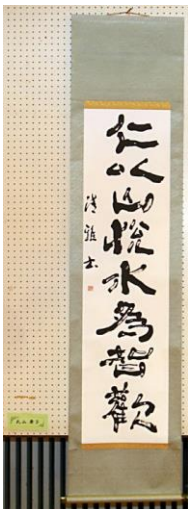 仁以山悦水為智歡
清雅書